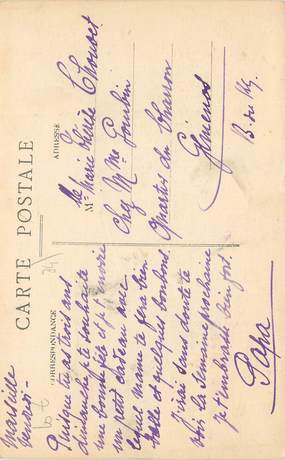 CARTE POSTALE
CORRESPONDANCE
ADRESSE
Marseille
Puisque tu as trois ans
dimanche, je te souhaite
une bonne fête et je t'envoie
un petit cadeau avec
lequel maman te fera bien
belle et quelques bonbons.
J'irai sans doute te
voir la semaine prochaine
je t'embrasse bien fort.
Papa
Mlle Marie Thérèse Chouvet
Chez Mme Joubin
Quartier du Charron
Gémenos
B. du Rh.